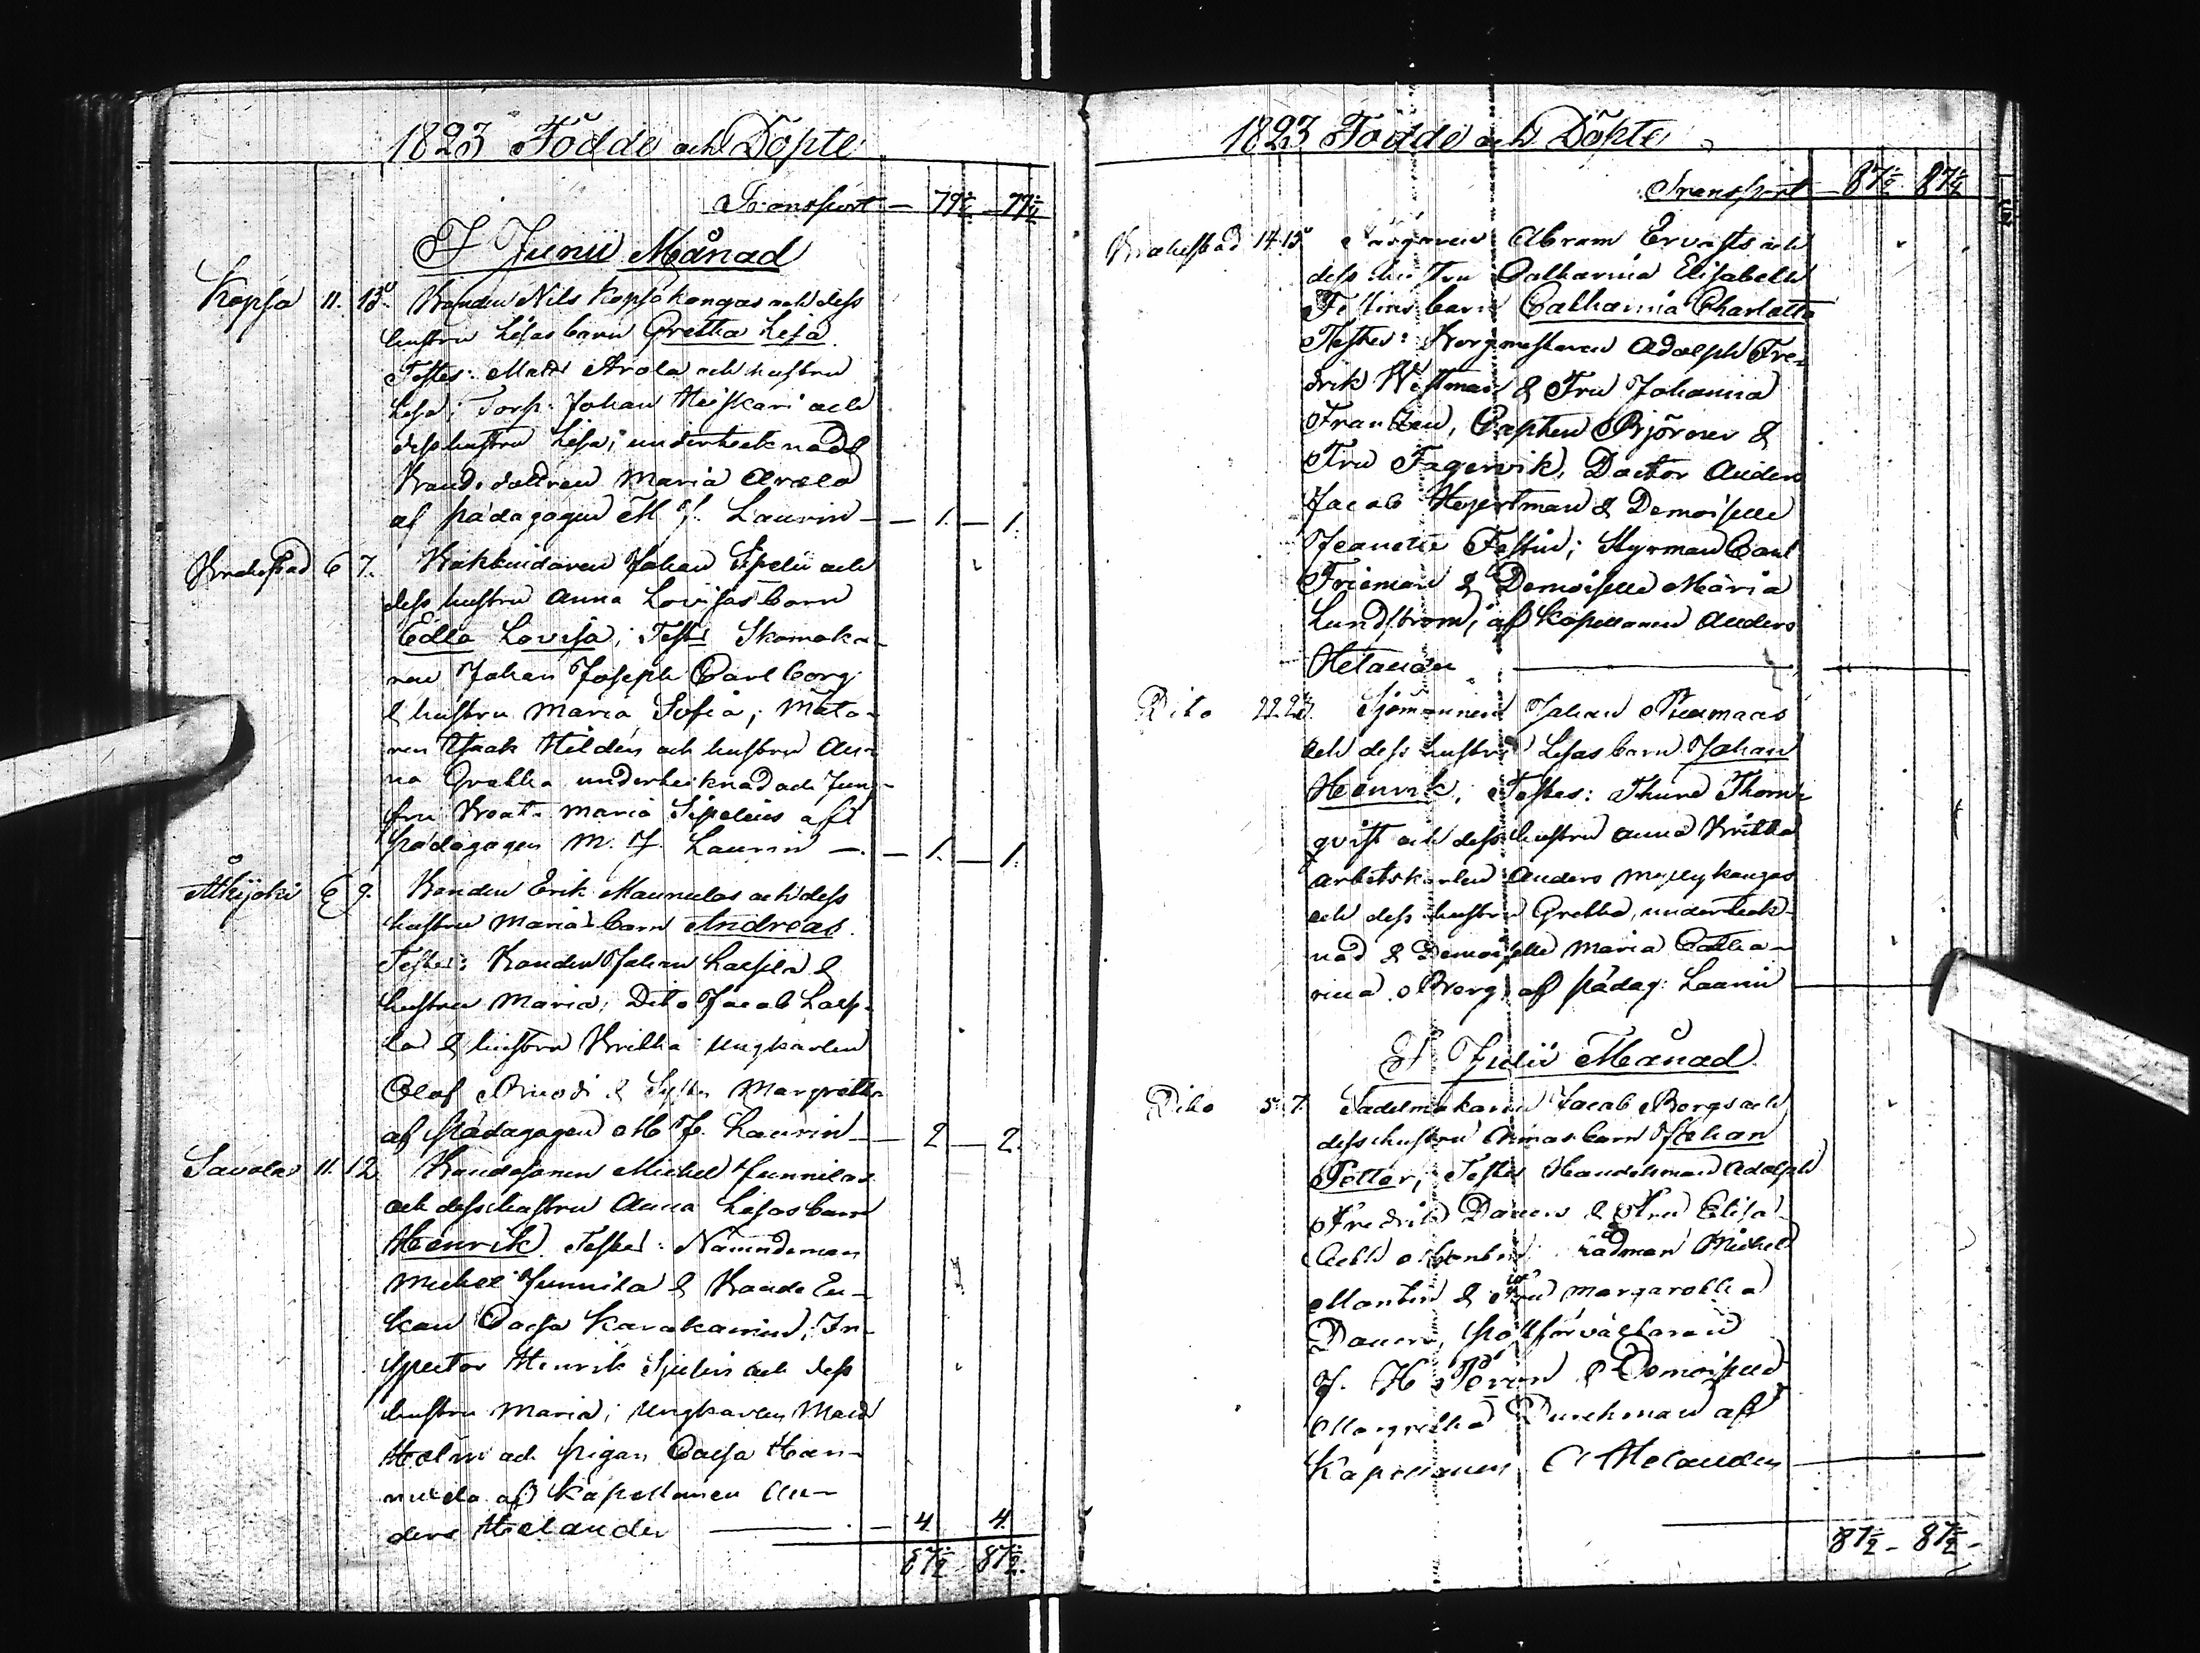 1823 Födde och Döpte
Transport — 79½ — 79½
I Junii Månad
Kopsa 11. 15. Bonden Nils Kopsakangas och dess
hustru Lisas barn Gretha Lisa.
Testes: Matts Arola och hustru
Lisa; Torp. Johan Heiskari och
dess hustru Lisa; undertecknad &
Bondedottren Maria Arola
af Pädagogen M. J. Laurin — 1. — 1.
Brahestad 6 7. Johan Sipelii och
dess hustru Anna Lovisas barn
Edla Lovisa; Testes Skomaka-
ren Johan Joseph Carlborg
& hustru Maria Sofia; Måla-
ren Isaak Hildén och hustru An-
na Gretha undertecknad och Jung-
fru Beata Maria Sipelius af
Pädagogen M. J. Laurin — 1. — 1.
Alkijoki 6 9. Bonden Erik Maunulas och dess
hustru Marias barn Andreas.
Testes: Bonden Johan &
hustru Maria; Dito Jacob
& hustru Britha Ungkarlen
Olof & Margretha
af Pädagogen M. J. Laurin — 2 — 2.
Savola 11. 12. Bondesonen Michel Junnilas
och dess hustru Anna Lisas barn
Henrik Testes: Nämndeman
Michel Junnila & Bonde En-
kan Caisa In-
spector Henrik och dess
hustru Maria; Ungkarlen Matts
Helmi och pigan Caisa Han-
nula af Kapellanen An-
ders Helander — 4. 4.
87½ 87½
1823 Födde och Döpte
Transport — 87½ 87½
Brahestad 14. 15. Abram Ervasts och
dess hustru Catharina Elisabeth
Festins barn Catharina Charlotta
Testes: Borgmästaren Adolph Fre-
drik Westman & Fru Johanna
Frantzen, Capten Björner &
Fru Fagervik, Doctor Anders
Jacob & Demoiselle
Jeanette Festin; Styrman Carl
Frieman & Demoiselle Maria
Lundström; af Kapellanen Anders
Helander —
Dito 22. 23. Sjömannen Johan
och dess hustru Lisas barn Johan
Henrik, Testes: Thure Thorn-
qvist och dess hustru Anna Britha
arbetskarlen Anders Myllykangas
och dess hustru Gretha, underteck-
nad & Demoiselle Maria Catha-
rina Borg af Pädag: Laurin
I Julii Månad
Dito 5. 7. Sadelmakaren Jacob Borgs och
dess hustru Annas barn Johan
Petter; Testes Handelsman Adolph
Fredrik & Fru Elisa-
beth rådman Michel
& Fru Margaretha
Postförvaltaren
J. H. & Demoiselle
Margretha Durchman af
Kapellanen A Helander —
87½ — 87½ —